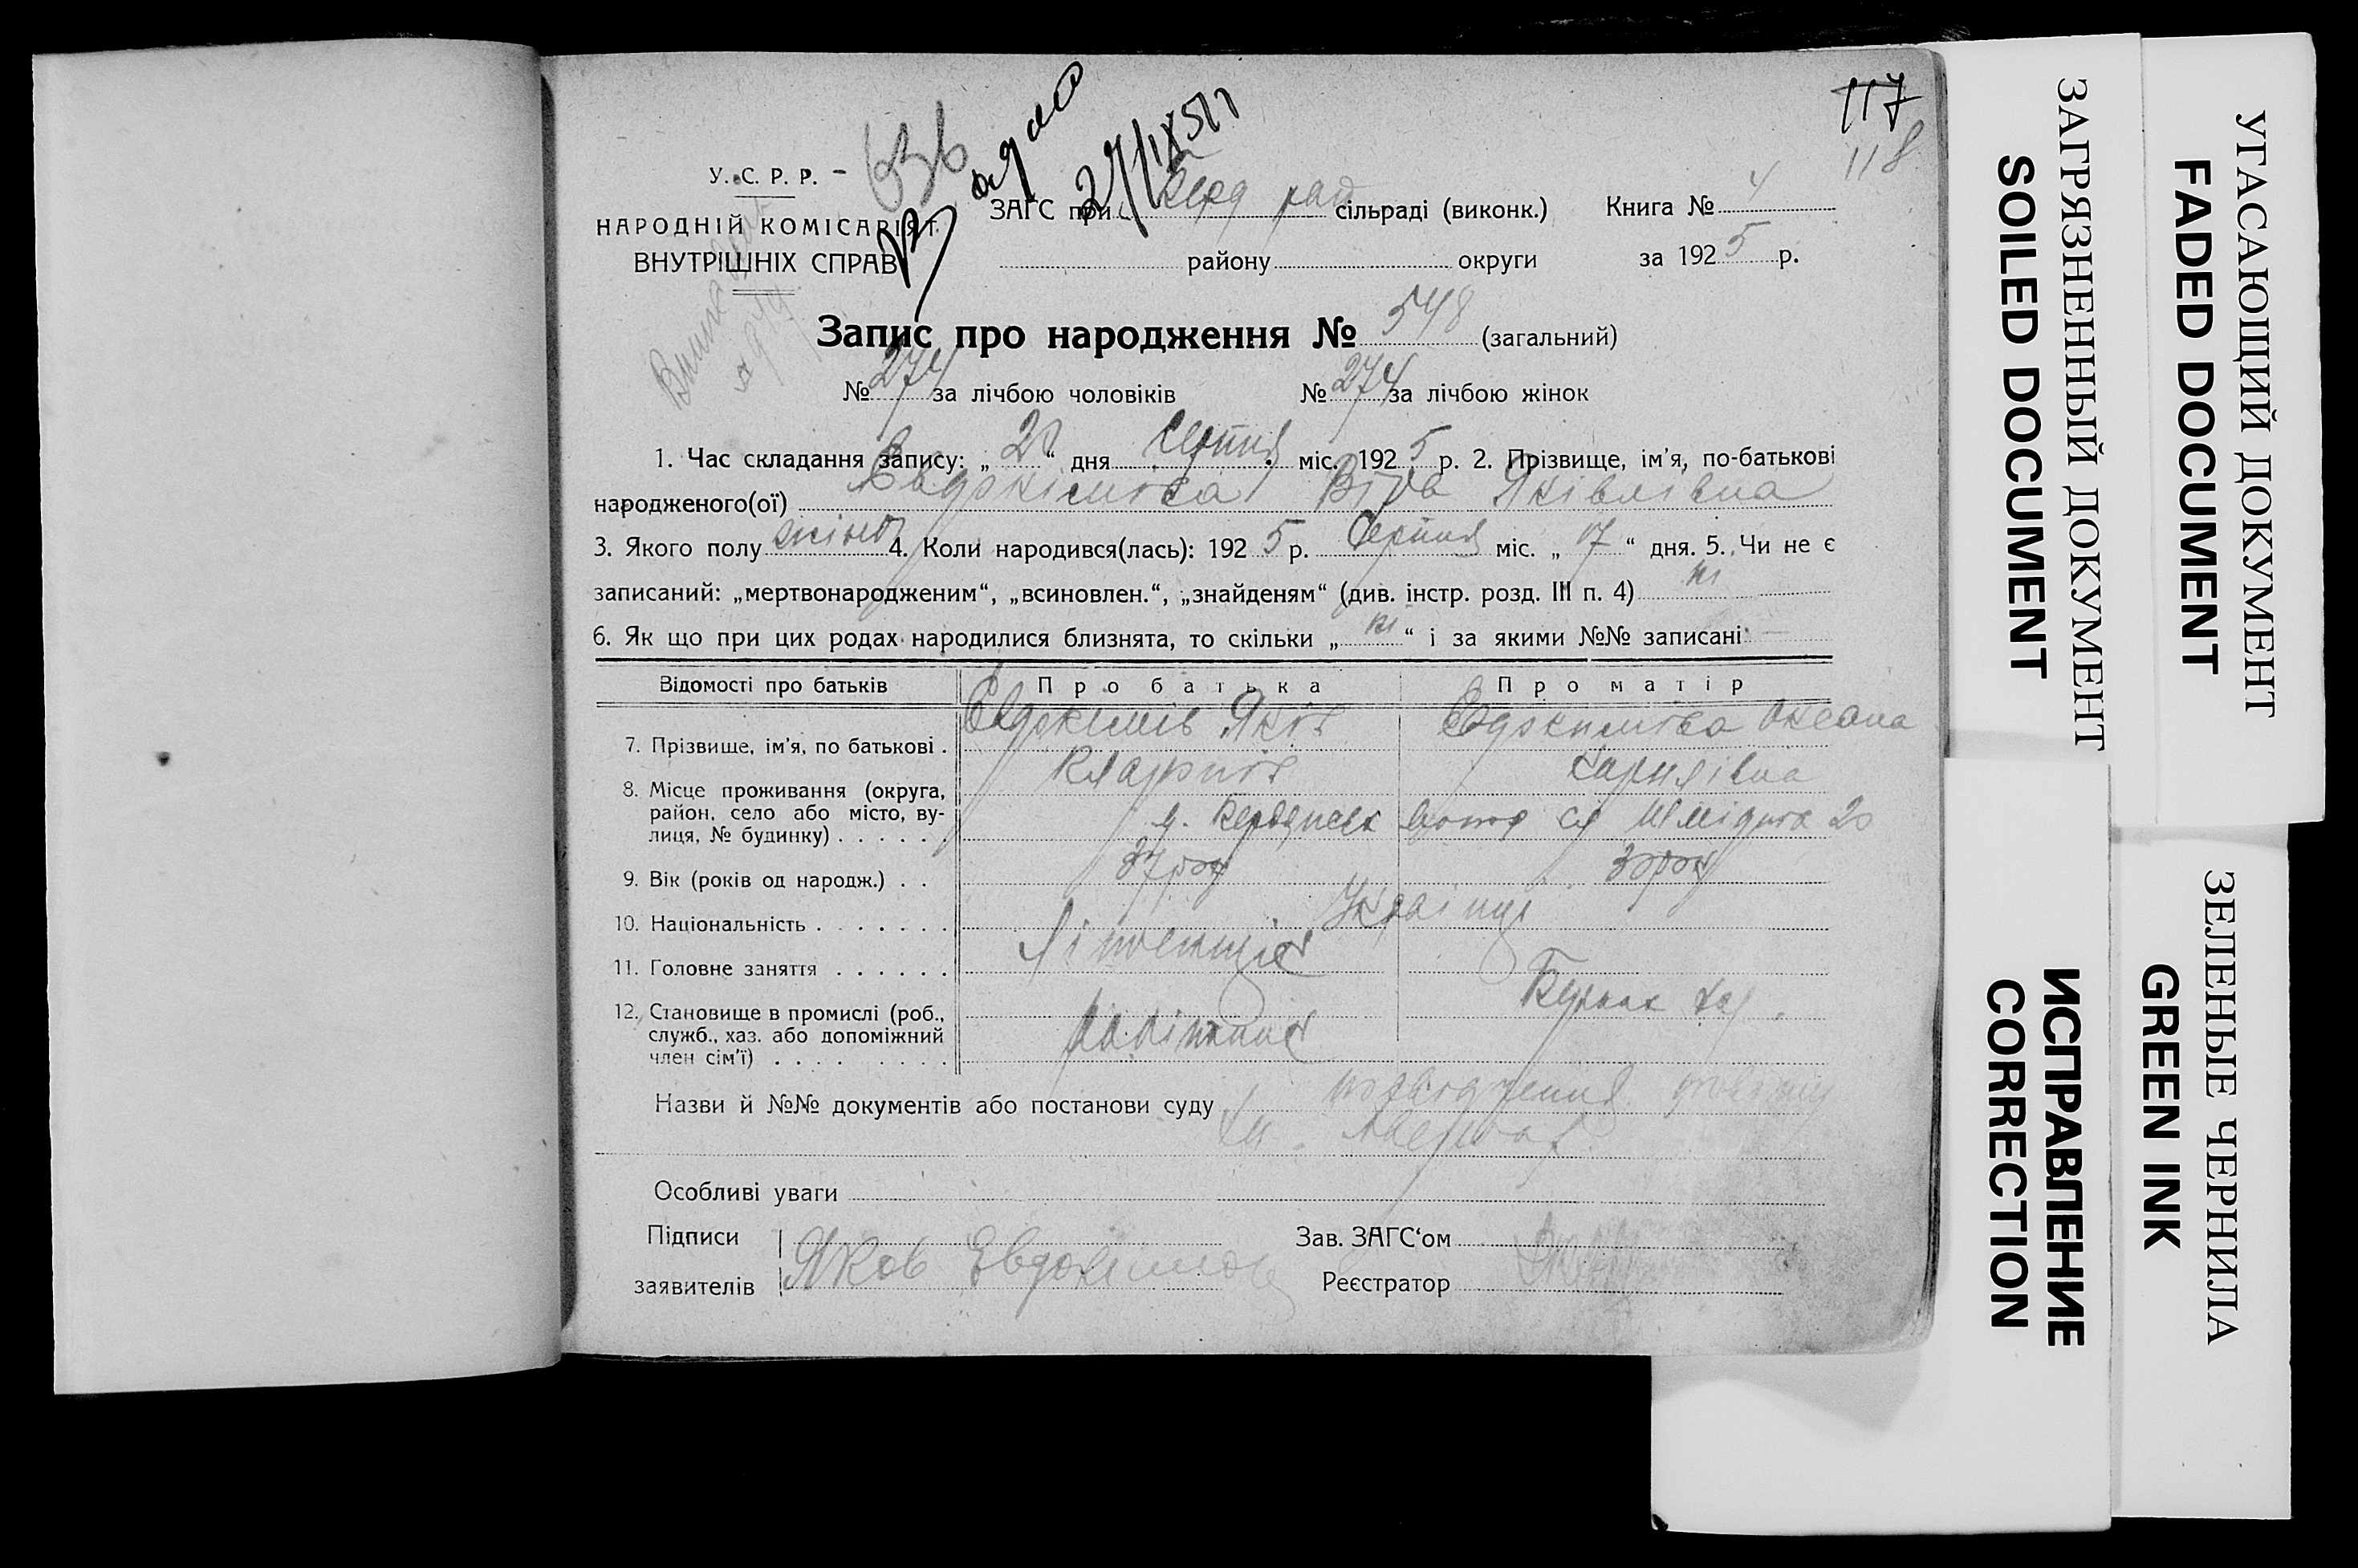 117
118
636
27/IX 51
У. С. Р. Р.
НАРОДНІЙ КОМІСАРІЯТ
ВНУТРІШНІХ СПРАВ
ЗАГС при Берд рай сільраді (виконк.)
району округи
Книга № 4
за 1925 р.
Запис про народження № 548 (загальний)
№ 274 за лічбою чоловіків № 274 за лічбою жінок
1. Час складання запису: „20“ дня Серпня міс. 1925 р. 2. Прізвище, ім'я, по-батькові
народженого(ої) Євдокімова Віра Яківлівна
3. Якого полу жіно 4. Коли народився(лась): 1925 р. Серпня міс. „17“ дня. 5. Чи не є
записаний: „мертвонародженим“, „всиновлен.“, „знайденям“ (див. інстр. розд. III п. 4) ні
6. Як що при цих родах народилися близнята, то скільки „ні“ і за якими №№ записані —
Відомості про батьків Про батька Про матір
7. Прізвище, ім'я, по батькові . Євдокимів Яків Євдокимова Оксана
8. Місце проживання (округа,
район, село або місто, ву-
лиця, № будинку) . . . . . . м. Бердянск Шмідта 20
9. Вік (років од народж.) . . 37 рок 30 рок
10. Національність . . . . . . . Українці
11. Головне заняття . . . . . .
12. Становище в промислі (роб.,
служб., хаз. або допоміжний
член сім'ї) . . . . . . . . .
Назви й №№ документів або постанови суду
Особливі уваги
Підписи
заявителів Яков Евдокимов
Зав. ЗАГС'ом
Реєстратор
УГАСАЮЩИЙ ДОКУМЕНТ
FADED DOCUMENT
ЗАГРЯЗНЕННЫЙ ДОКУМЕНТ
SOILED DOCUMENT
ЗЕЛЕНЫЕ ЧЕРНИЛА
GREEN INK
ИСПРАВЛЕНИЕ
CORRECTION